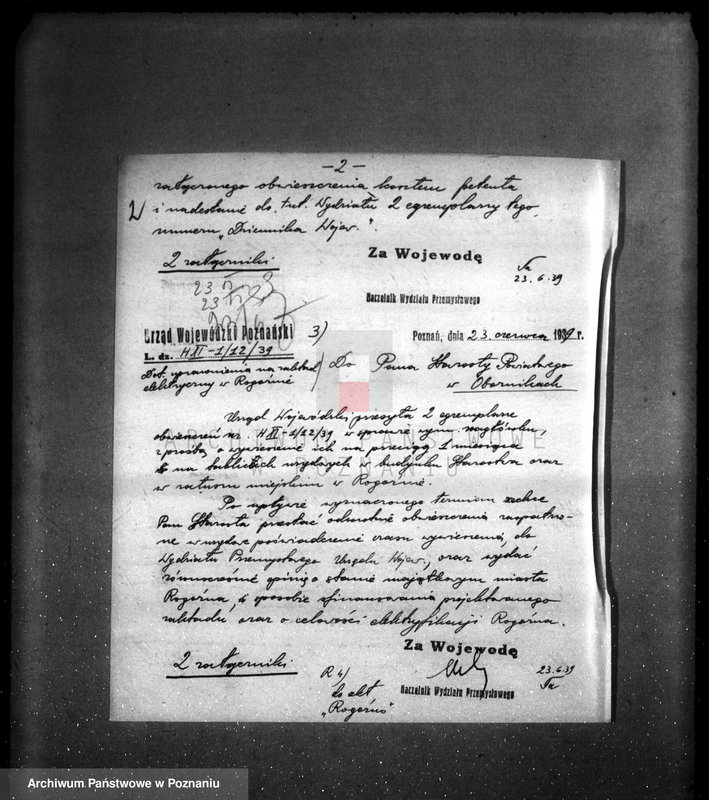 – 2 –
załączonego obwieszczenia kosztem petenta
2/ i nadesłanie do tut. Wydziału 2 egzemplarzy tego
numeru „Dziennika Wojew.".
2 załączniki
Za Wojewodę
23.6.39
Naczelnik Wydziału Przemysłowego
Urząd Wojewódzki Poznański 3)
Poznań, dnia 23 czerwca 1939 r.
L. dz. HXI-1/12/39
Dot. uprawnienia na zakład
elektryczny w Rogoźnie
Do Pana Starosty Powiatowego
w Obornikach
Urząd Wojewódzki przesyła 2 egzemplarze
obwieszczeń nr. HXI-1/12/39 w sprawie wym. nagłówku,
z prośbą o wywieszenie ich na przeciąg 1 miesiąca
na tablicach urzędowych w budynku Starostwa oraz
w ratuszu miejskim w Rogoźnie.
Po upływie wyznaczonego terminu zechce
Pan Starosta przesłać odnośne obwieszczenia zaopatrzo-
ne w urzędowe poświadczenie czasu wywieszenia, do
Wydziału Przemysłowego Urzędu Wojew., oraz wydać
równocześnie opinię o stanie majątkowym miasta
Rogoźna, o sposobie sfinansowania projektowanego
zakładu, oraz o celowości elektryfikacji Rogoźna.
Za Wojewodę
2 załączniki
23.6.39
Naczelnik Wydziału Przemysłowego
R 4)
do akt
„Rogoźno"
ARCHIWUM PAŃSTWOWE
W POZNANIU
Archiwum Państwowe w Poznaniu